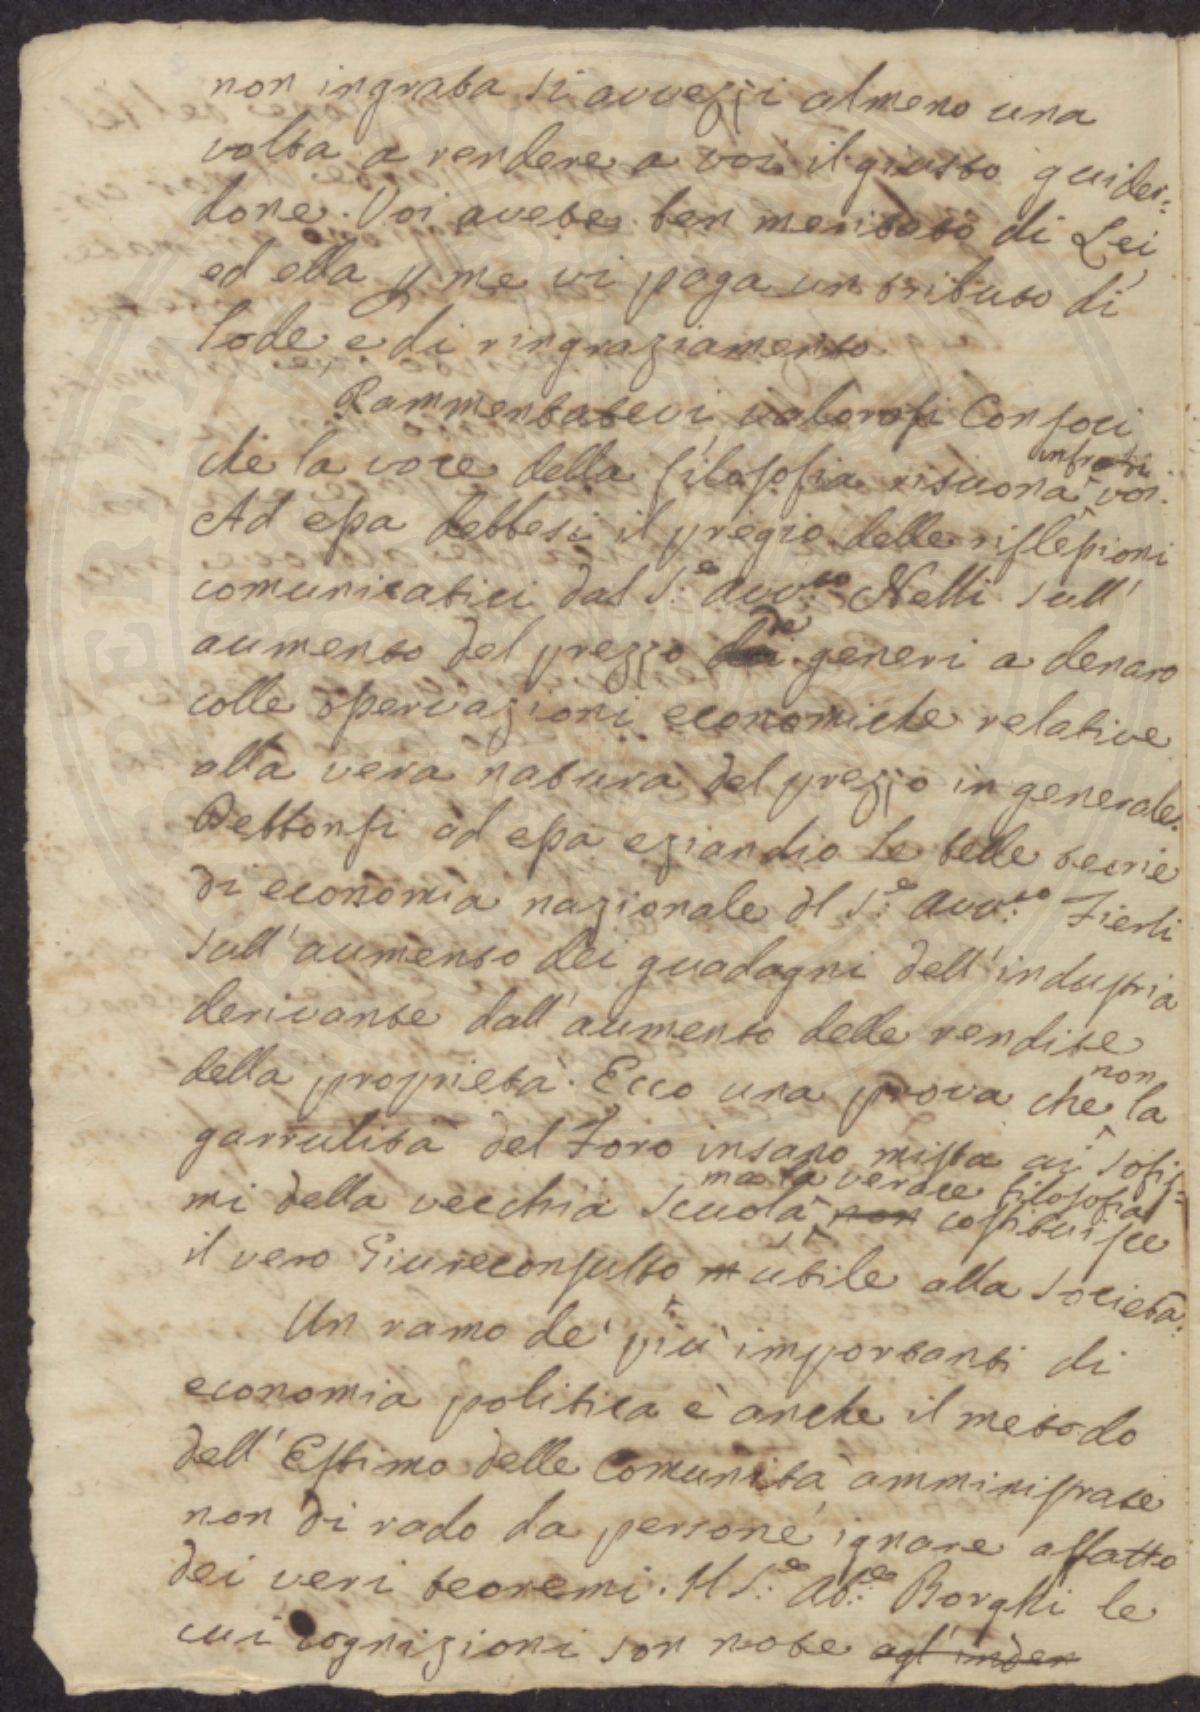 non ingrata si avvezzi almeno una
volta a rendere a voi il giusto guider=
done. Voi avete ben meritato di Lei
ed ella p me vi paga un tributo di
lode e di ringraziamento
Rammentatevi, valorosi Consoci
che la voce della filosofia risuona infra di voi.
Ad essa debbesi il pregio delle riflessioni
comunicatici dal S.e Avv.to Nelli sull'
aumento del prezzo de generi a denaro
colle operazioni economiche relative
alla vera natura del prezzo in generale.
Debbonsi ad essa eziandio le belle teorie
di economia nazionale dl S.e Avv.to Fierli
sull'aumento dei guadagni dell'industria
derivante dall'aumento delle rendite
della proprietà. Ecco una prova che non la
garrulità del Foro insano mista ai sofis=
mi della vecchia scuola ma la verace filosofia non costituisce
il vero Giureconsulto utile alla società.
Un ramo de' più importanti di
economia politica è anche il metodo
dell'Estimo delle Comunità amministrate
non di rado da persone ignare affatto
dei veri teoremi. Il S.e Ab.e Borghi le
cui cognizioni son note agl'inden